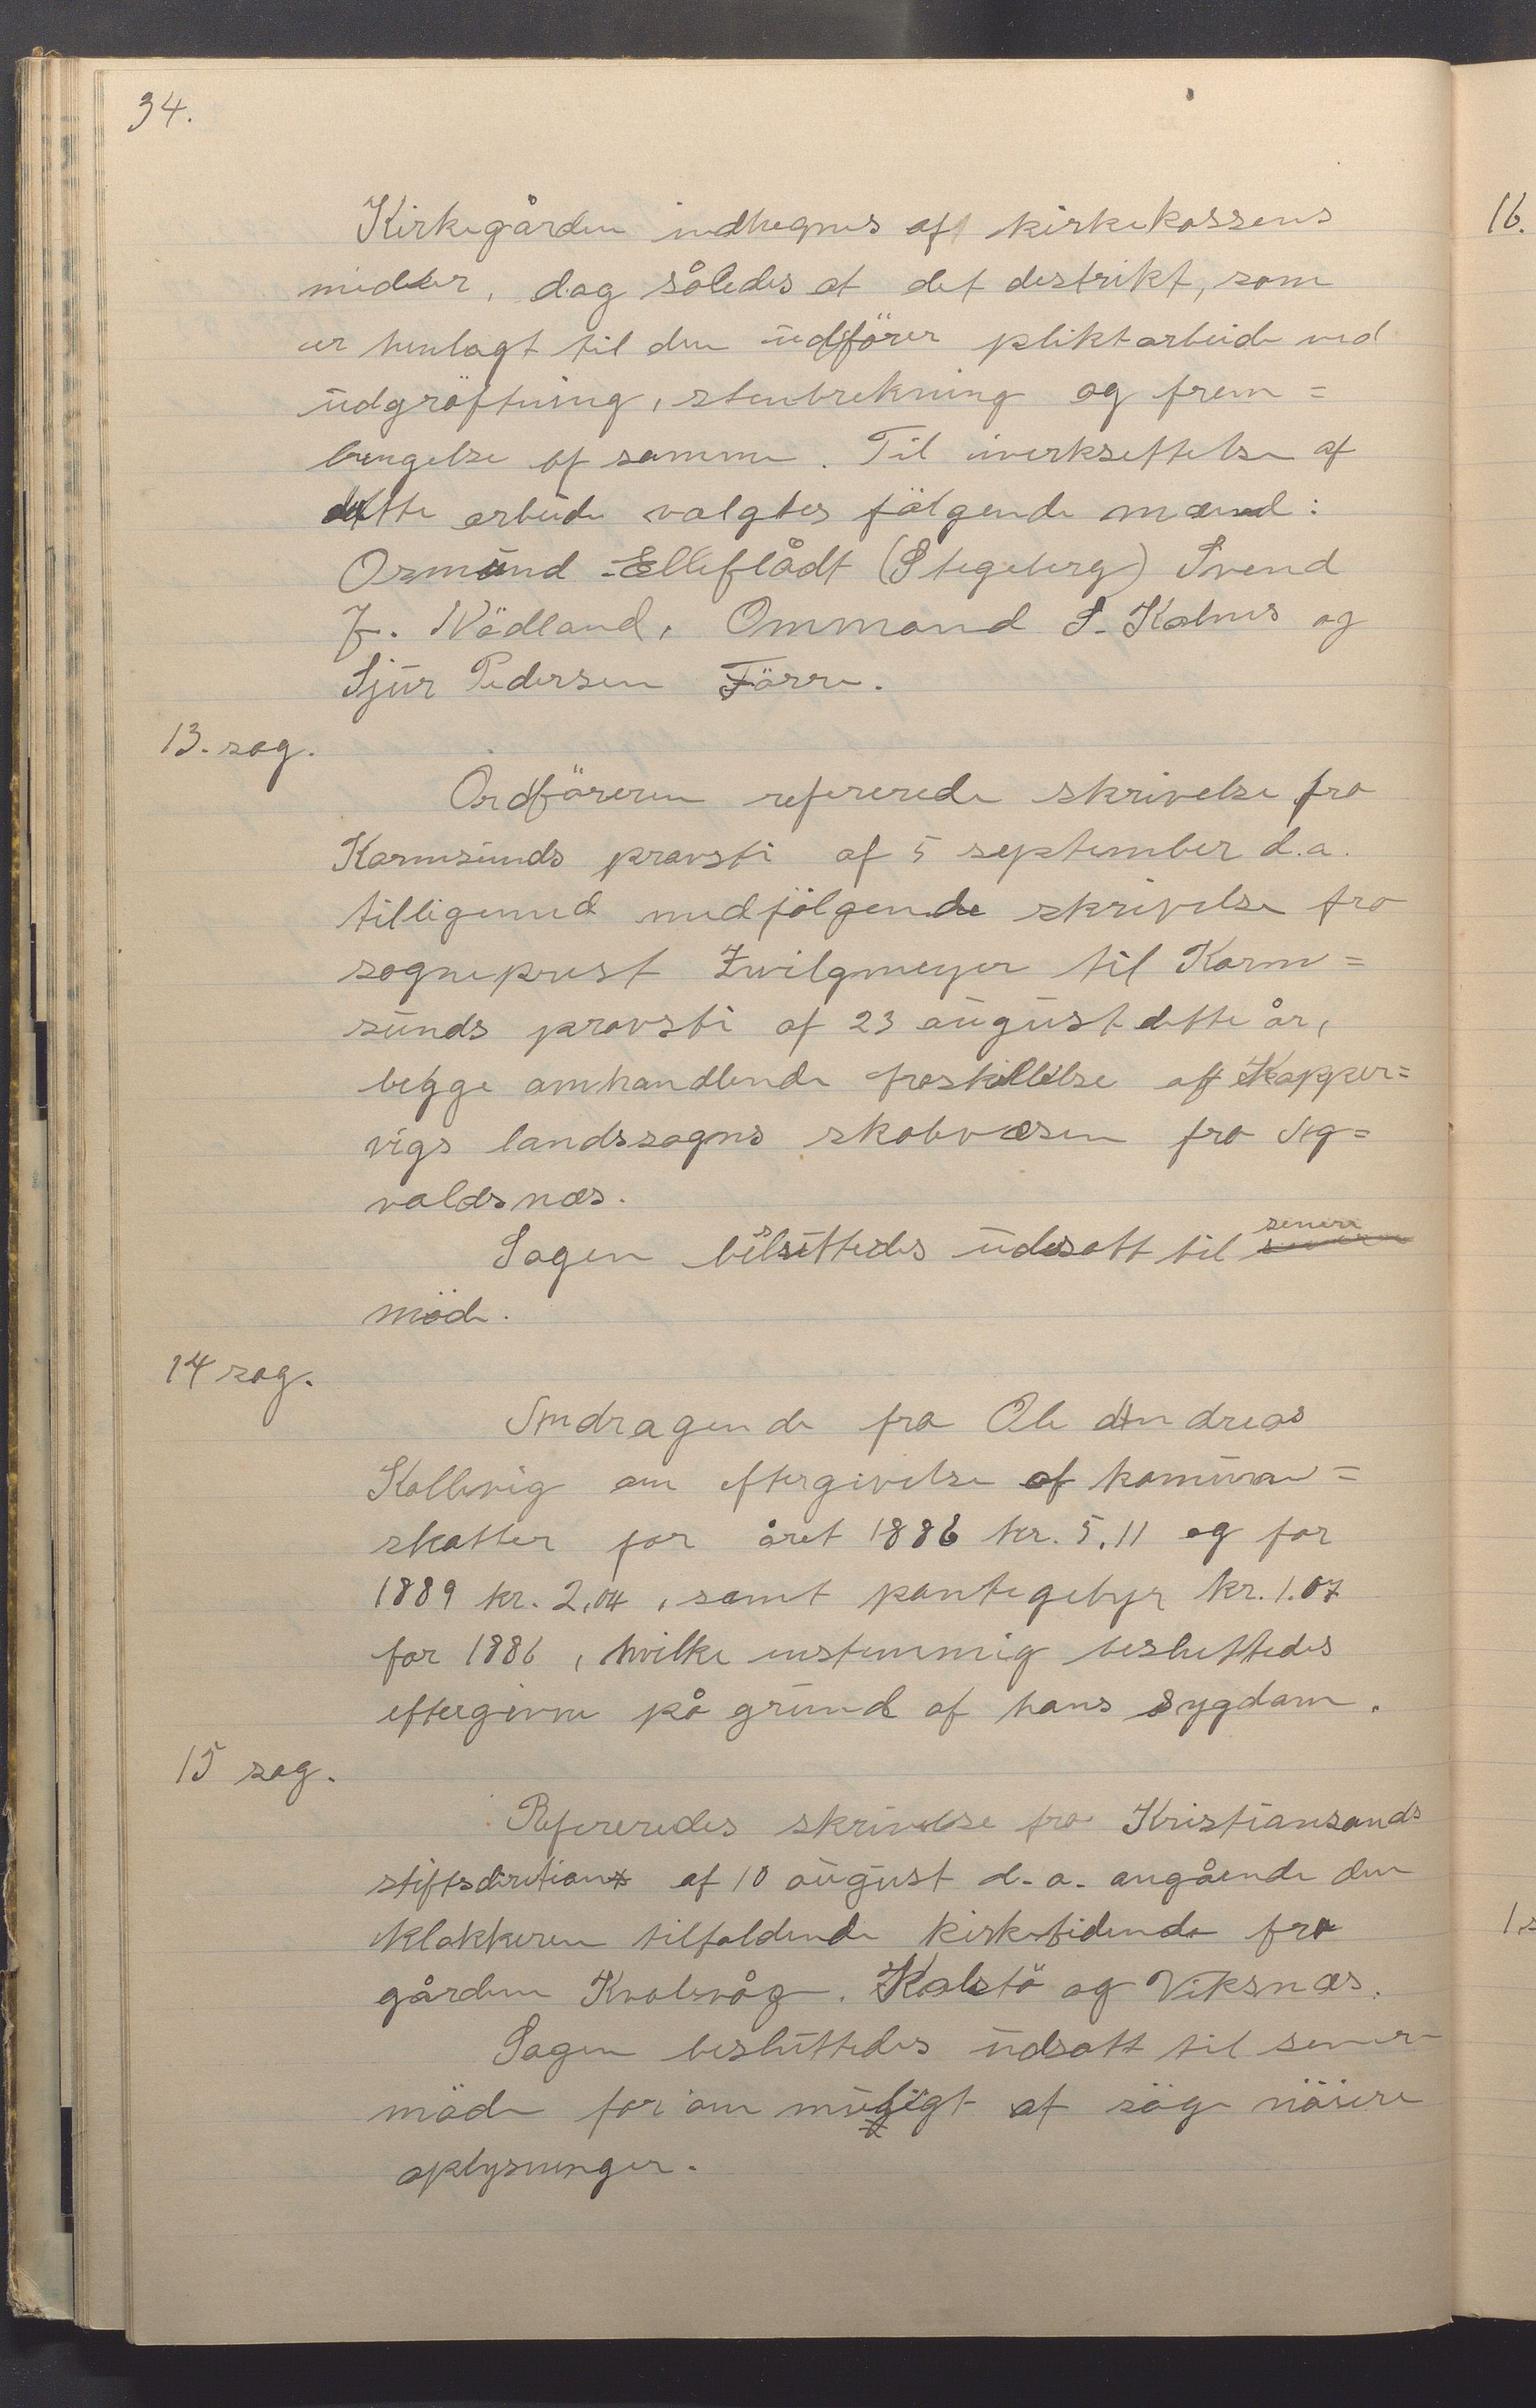 34.
Kirkegården indhegnes af kirkekassens
midler, dog således at det destrikt, som
er henlagt til den udfører pliktarbeide ved
udgrøftning, stenbrekning og frem=
bringelse af samme. Til iverksettelse af
dette arbeide valgtes følgende mænd:
Osmund Elleflådt (Stegeberg) Svend
J. Nødland, Ommand S. Kalnes og
Sjur Pedersen Förre.
13. sag.
Ordföreren refererede skrivelse fra
Karmsunds provsti af 5 september d.a.
tilligemed medfölgende skrivelse fra
sogneprest Zwilgmeyer til Karm=
sunds provsti af 23 august dette år,
begge omhandlende fraskillelse af Kopper=
vigs landssogns skolevæsen fra Aug=
valdsnæs.
Sagen besluttedes udsatt til senere
möde.
14 sag.
Andragende fra Ole Andreas
Kollevig om eftergivelse af kommune=
skatter for året 1886 kr. 5,11 og for
1889 kr. 2,04, samt pantegebyr kr. 1.07
for 1886, hvilke enstemmig besluttedes
eftergivne på grund af hans sygdom.
15 sag.
Refereredes skrivelse fra Kristiansands
stiftsdiretion af 10 august d.a. angående den
klokkeren tilfaldende kirketidende fra
gårdene Kvalevåg. Kalstö og Viksnæs.
Sagen besluttedes udsatt til senere
möde for om muligt at söge nöiere
oplysninger.
16.